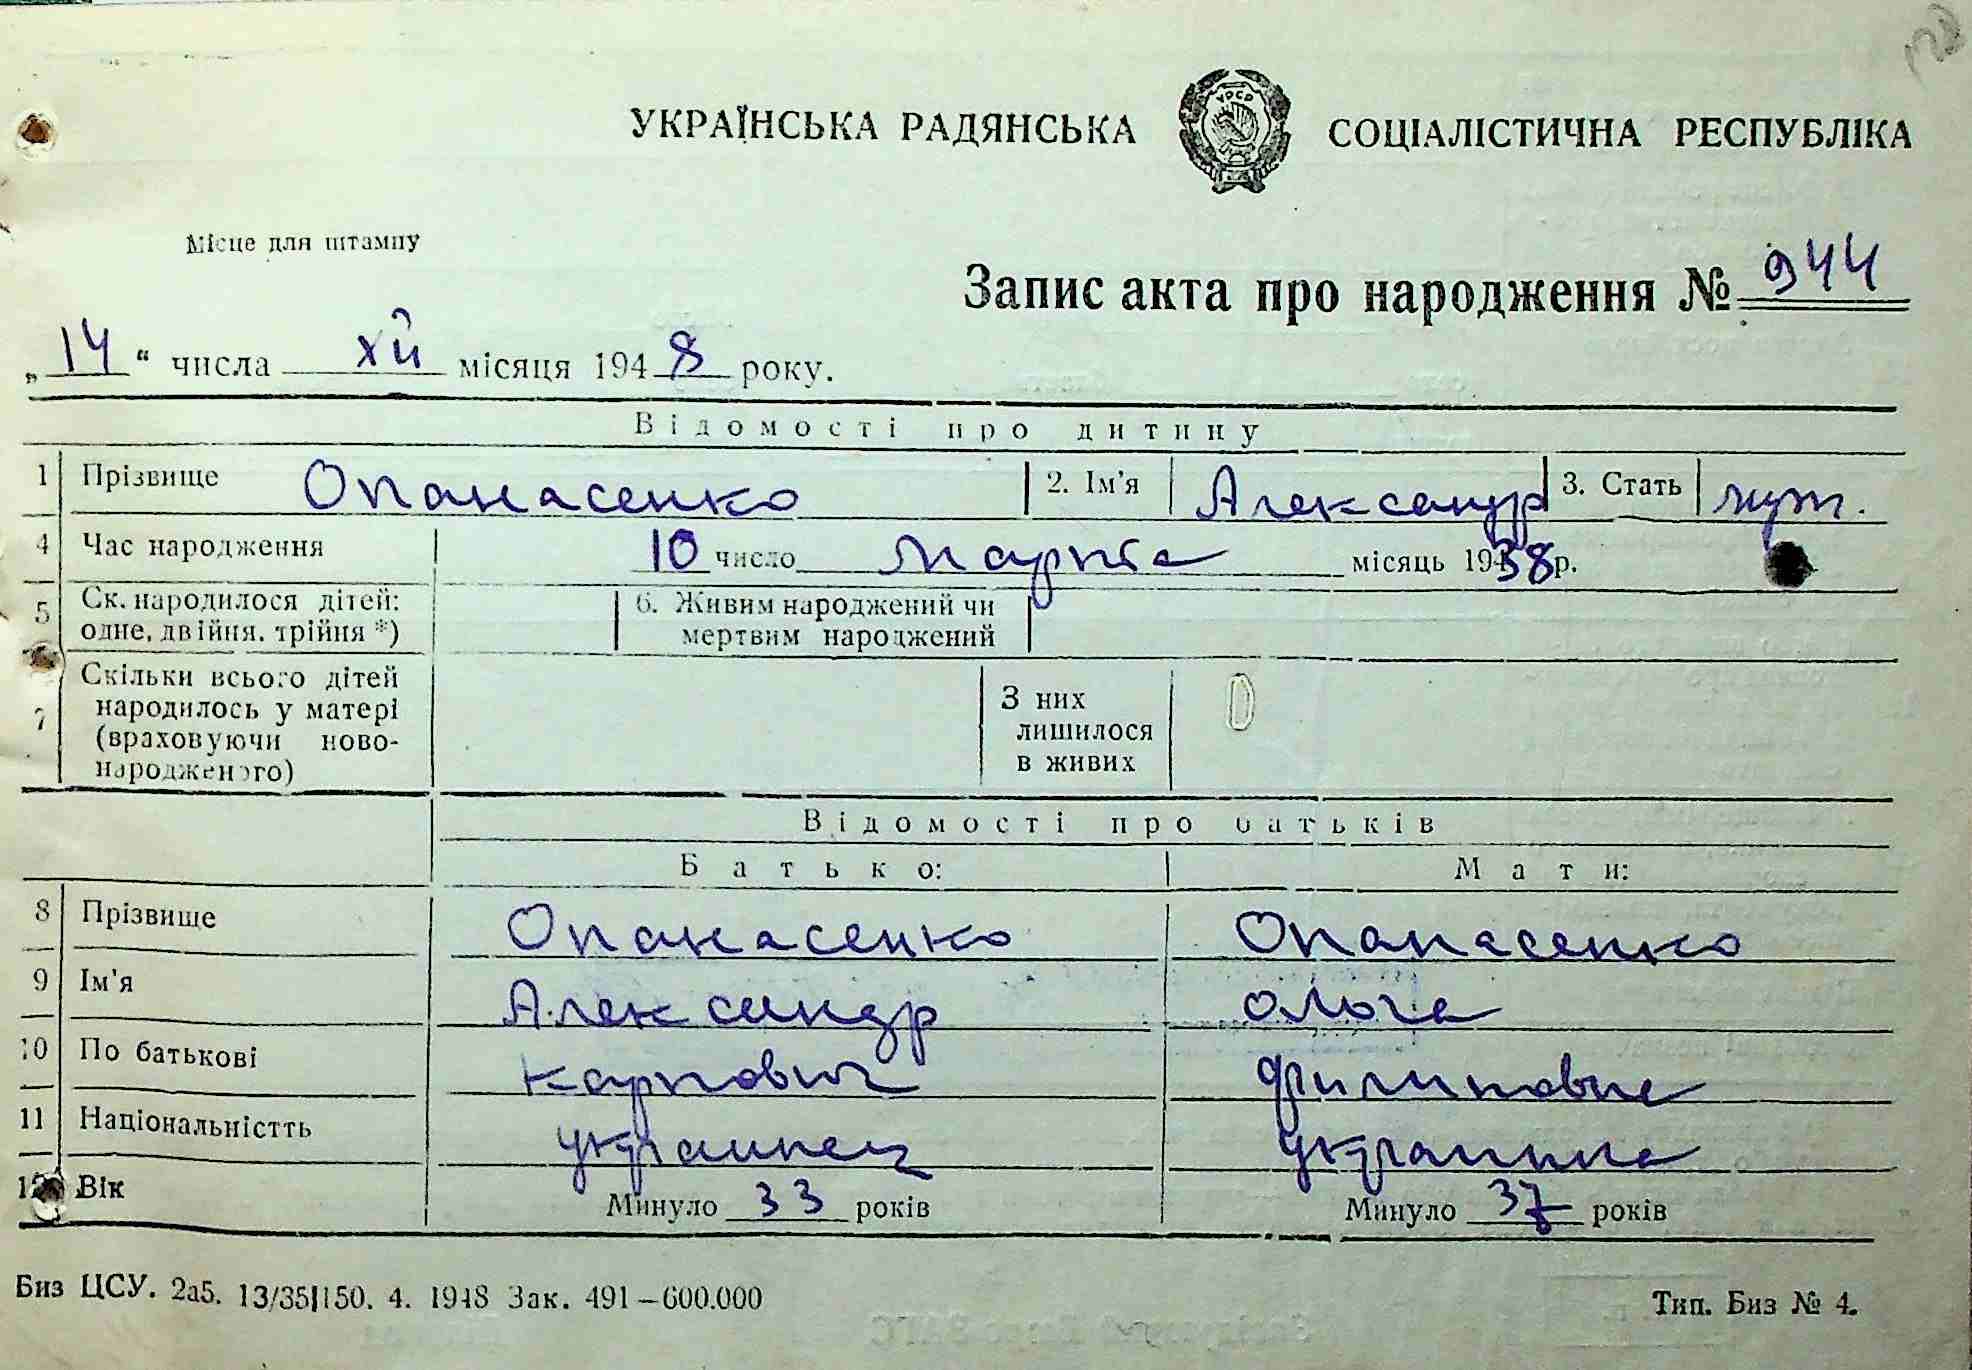 УКРАЇНСЬКА РАДЯНСЬКА СОЦІАЛІСТИЧНА РЕСПУБЛІКА
УРСР
Місце для штампу
Запис акта про народження № 944
„14“ числа ХІІ місяця 1948 року.
Відомості про дитину
1 Прізвище Опанасенко 2. Ім'я Александр 3. Стать муж.
4 Час народження 10 число марта місяць 1938 р.
5 Ск. народилося дітей: одне, двійня, трійня *) 6. Живим народжений чи мертвим народжений
7 Скільки всього дітей народилось у матері (враховуючи ново-народженого) З них лишилося в живих
Відомості про батьків
Батько: Мати:
8 Прізвище Опанасенко Опанасенко
9 Ім'я Александр Ольга
10 По батькові Карпович Филиповна
11 Національністть украинец украинка
12 Вік Минуло 33 років Минуло 37 років
Биз ЦСУ. 2а5. 13/35|150. 4. 1948 Зак. 491–600.000 Тип. Биз № 4.